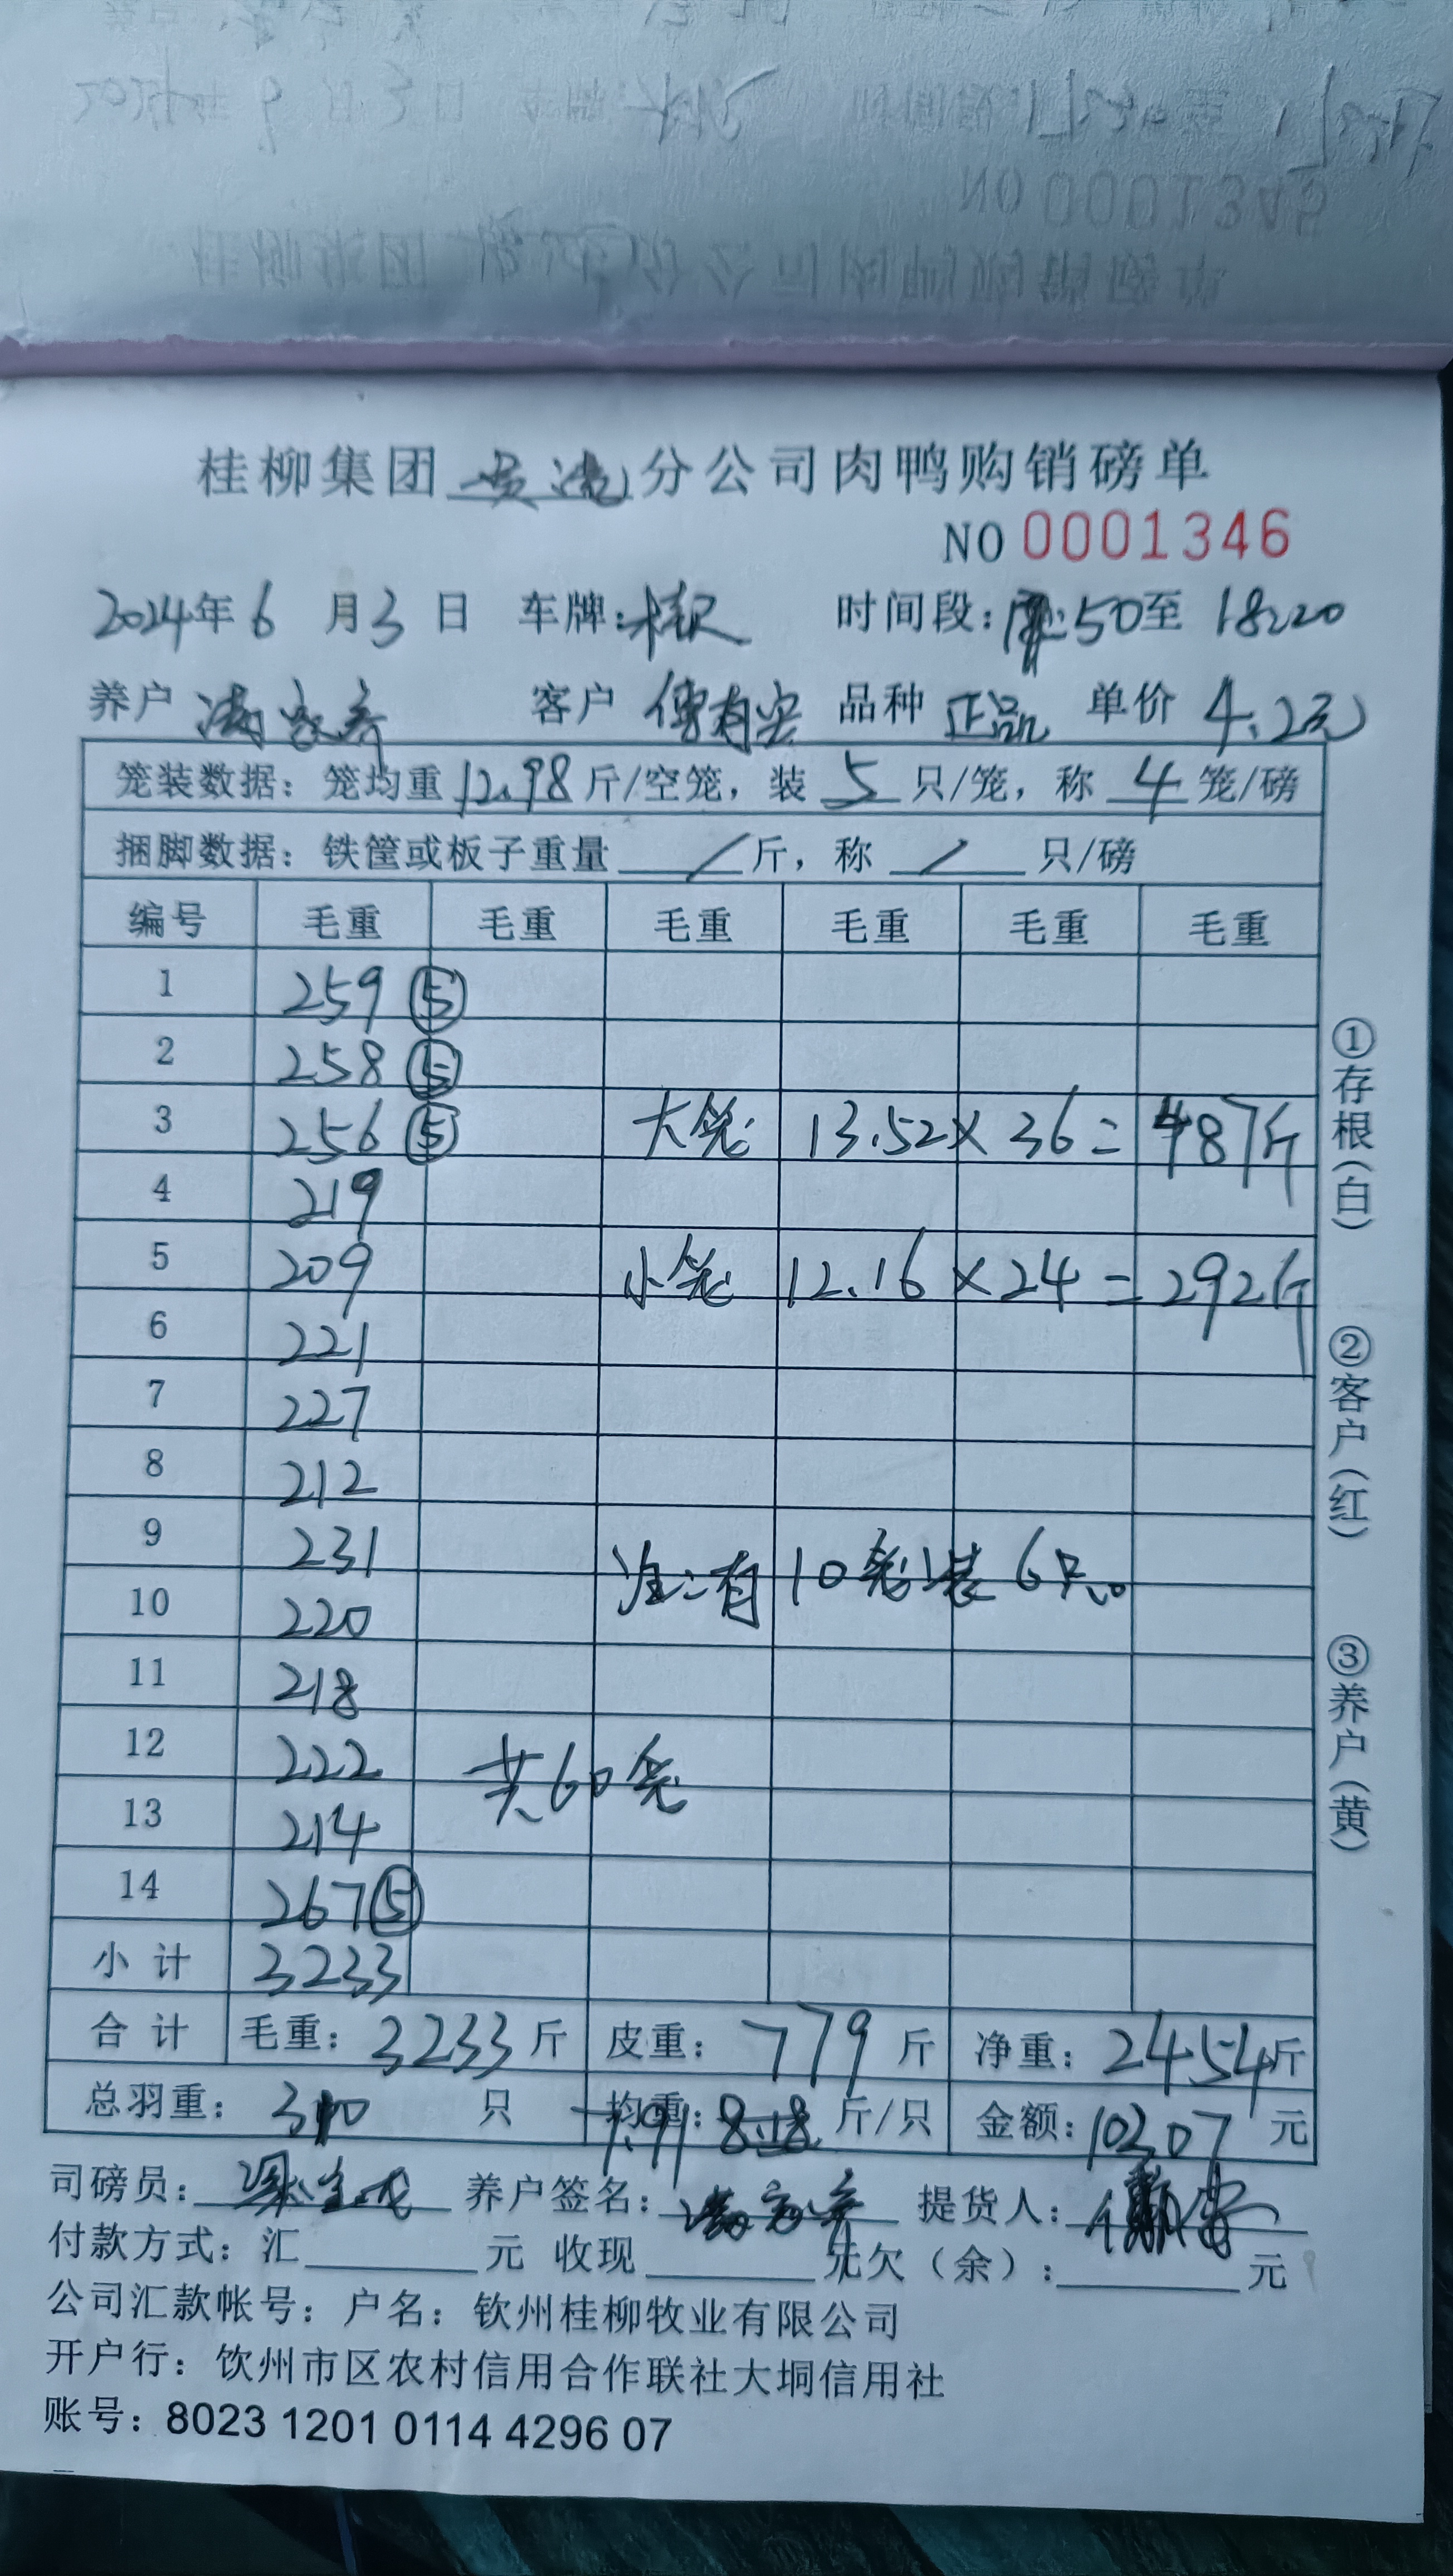 桂柳集团 灵湾 分公司肉鸭购销磅单
NO 0001346
2024年6月3日 车牌: 时间段: :50至 18:20
养户 客户 傅有安 品种 正品 单价 4.2元
笼装数据：笼均重 12.98 斤/空笼，装 5 只/笼，称 4 笼/磅
捆脚数据：铁筐或板子重量 / 斤，称 / 只/磅
编号 毛重 毛重 毛重 毛重 毛重 毛重
1 259 ⑤
2 258 ⑤
3 256 ⑤ 大笼 13.52×36=487斤
4 219
5 209 小笼 12.16×24=292斤
6 221
7 227
8 212
9 231 注:有10笼装6只。
10 220
11 218
12 222 共60笼
13 214
14 267 ⑤
小计 3233
合计 毛重：3233斤 皮重：779斤 净重：2454斤
总羽重：310 只 均重：7.91 斤/只 金额：10307 元
司磅员： 养户签名： 提货人：
付款方式：汇 元 收现 元欠（余）： 元
公司汇款帐号：户名：钦州桂柳牧业有限公司
开户行：钦州市区农村信用合作联社大垌信用社
账号：8023 1201 0114 4296 07
①存根（白）
②客户（红）
③养户（黄）